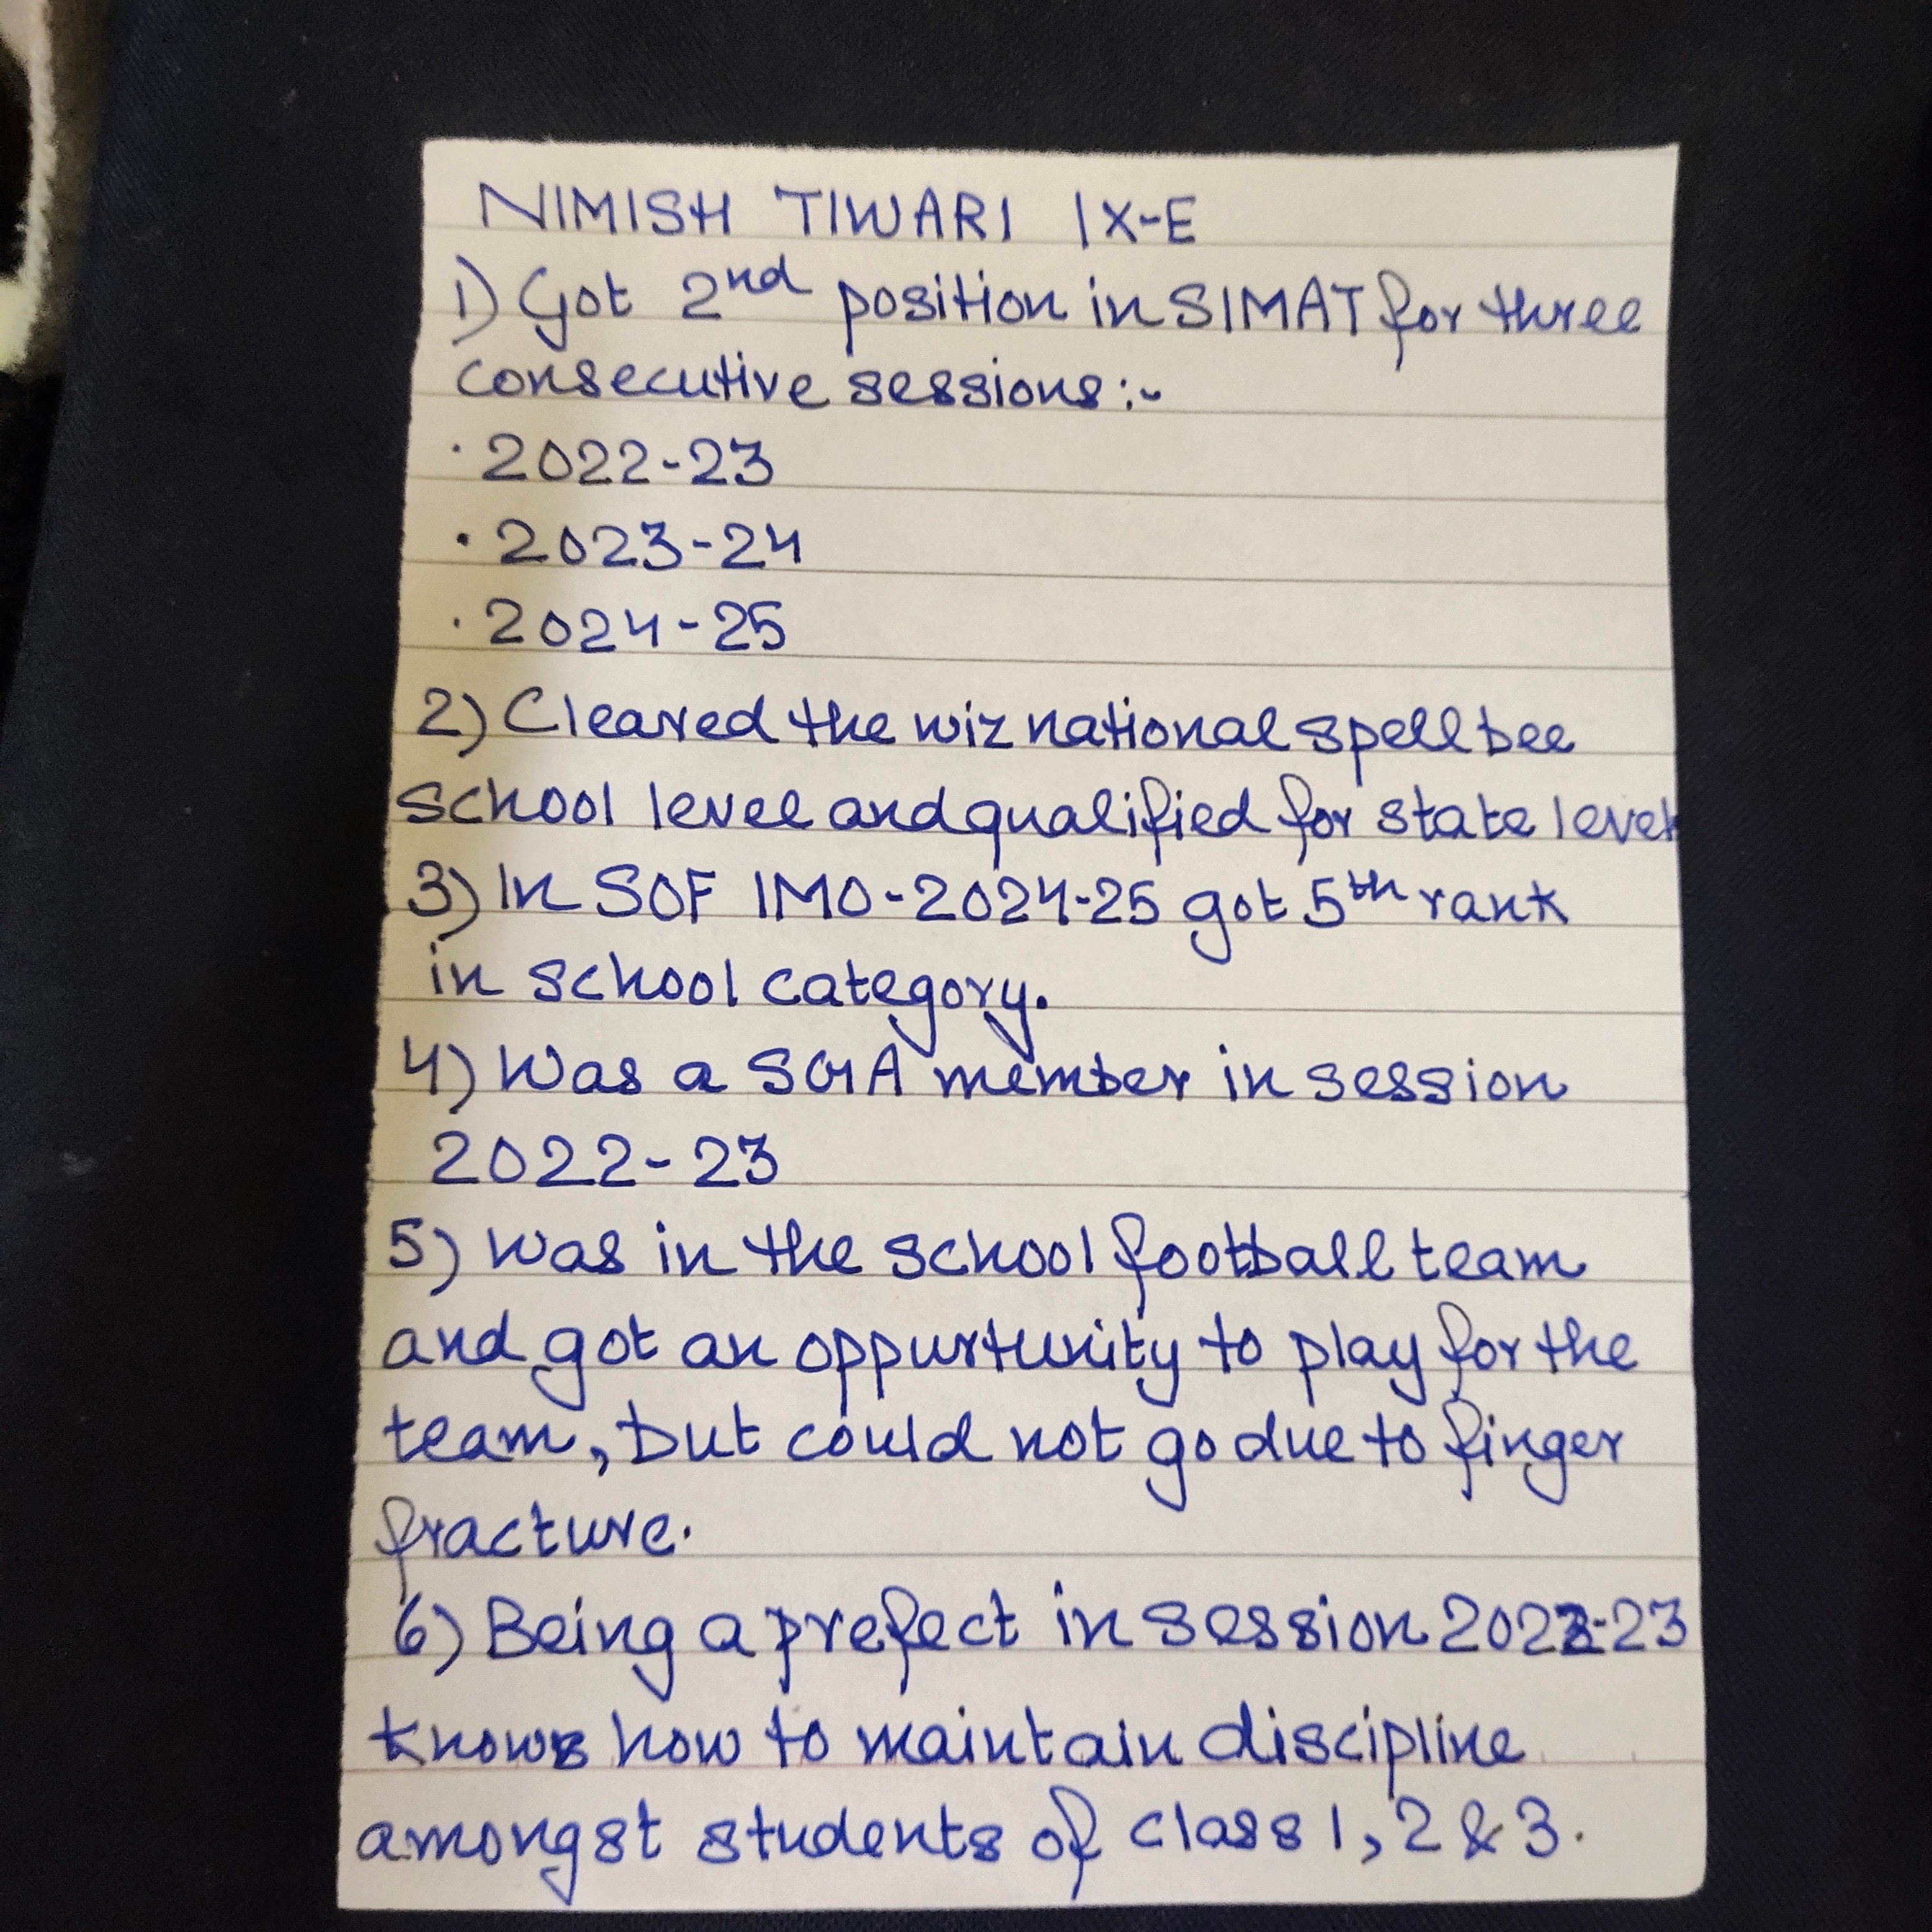 NIMISH TIWARI IX-E
1) Got 2nd position in SIMAT for three
consecutive sessions:-
· 2022-23
· 2023-24
· 2024-25
2) Cleared the wiz national spell bee
school level and qualified for state level
3) In SOF IMO-2024-25 got 5th rank
in school category.
4) Was a SGA member in session
2022-23
5) Was in the school football team
and got an oppurtunity to play for the
team, but could not go due to finger
fracture.
6) Being a prefect in session 2022-23
knows how to maintain discipline
amongst students of class 1, 2 & 3.